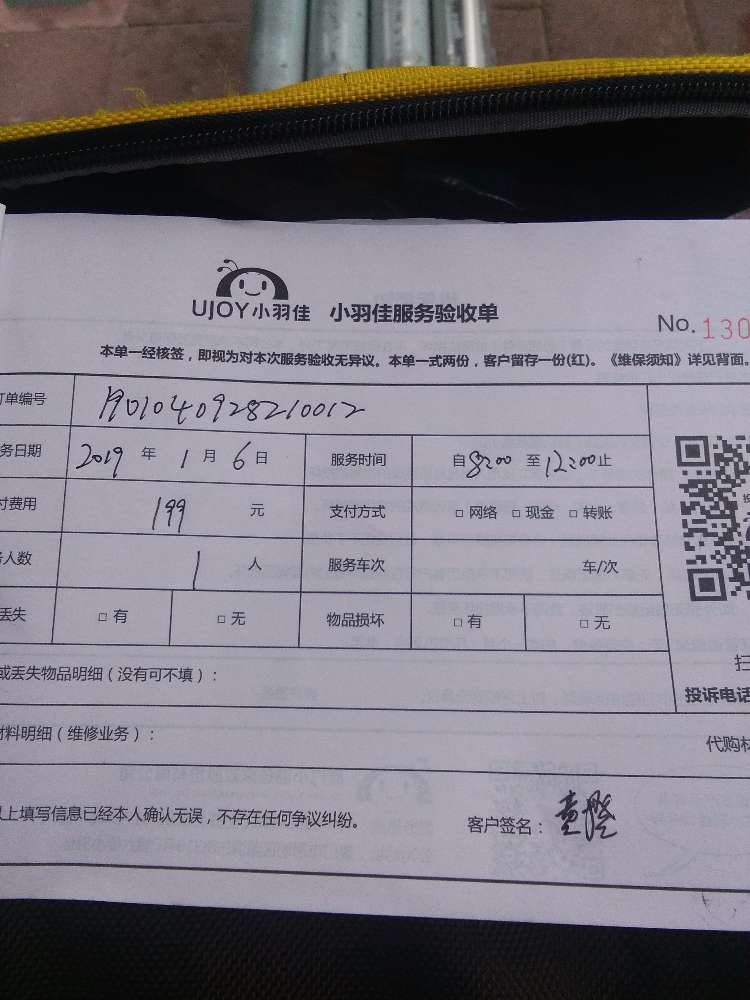 UJOY小羽佳 小羽佳服务验收单
No. 130
本单一经核签，即视为对本次服务验收无异议。本单一式两份，客户留存一份(红)。《维保须知》详见背面。
单编号 1901040928210012
务日期 2019 年 1 月 6 日 服务时间 自 8:00 至 12:00 止
付费用 199 元 支付方式 □ 网络 □ 现金 □ 转账
人数 1 人 服务车次 车/次
丢失 □ 有 □ 无 物品损坏 □ 有 □ 无
扫
或丢失物品明细（没有可不填）：
投诉电话
材料明细（维修业务）：
代购材
上填写信息已经本人确认无误，不存在任何争议纠纷。
客户签名：